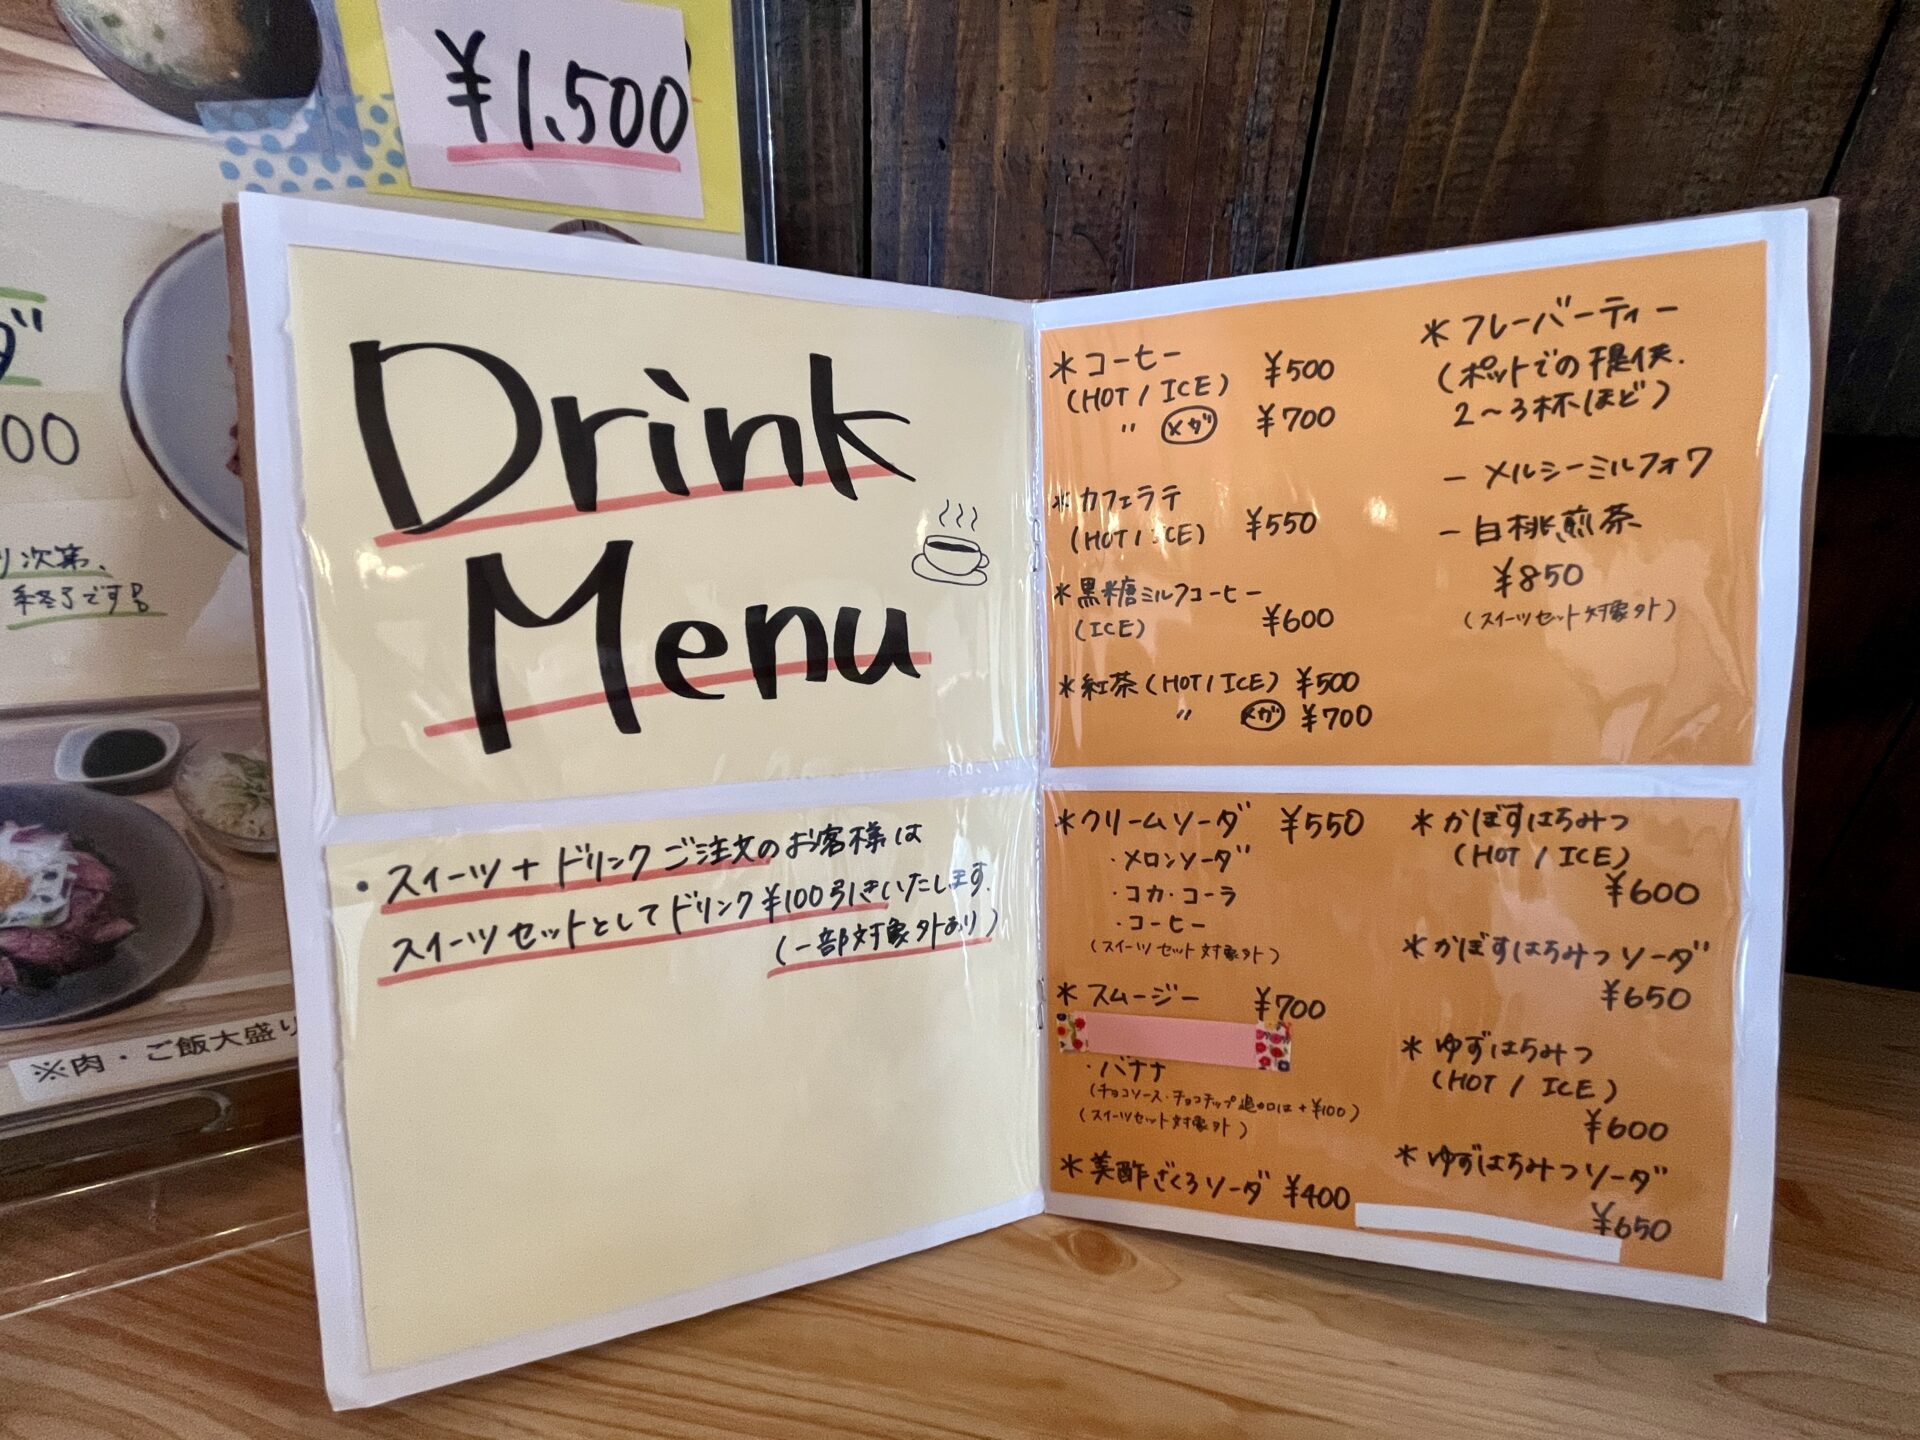 ¥1,500
ダ
00
り次第、
終了です
※肉・ご飯大盛り
Drink
Menu
・スイーツ+ドリンクご注文のお客様は
スイーツセットとしてドリンク¥100引きいたします.
(一部対象外あり)
*コーヒー ¥500
(HOT / ICE)
〃 メガ ¥700
*カフェラテ
(HOT / ICE) ¥550
*黒糖ミルクコーヒー
(ICE) ¥600
*紅茶(HOT / ICE) ¥500
〃 メガ ¥700
*フレーバーティー
(ポットでの提供.
2〜3杯ほど)
ー メルシーミルフォワ
ー 白桃煎茶
¥850
(スイーツセット対象外)
*クリームソーダ ¥550
・メロンソーダ
・コカ・コーラ
・コーヒー
(スイーツセット対象外)
*スムージー ¥700
・バナナ
(チョコソース・チョコチップ追加は+¥100)
(スイーツセット対象外)
*美酢ざくろソーダ ¥400
*かぼすはちみつ
(HOT / ICE)
¥600
*かぼすはちみつソーダ
¥650
*ゆずはちみつ
(HOT / ICE)
¥600
*ゆずはちみつソーダ
¥650